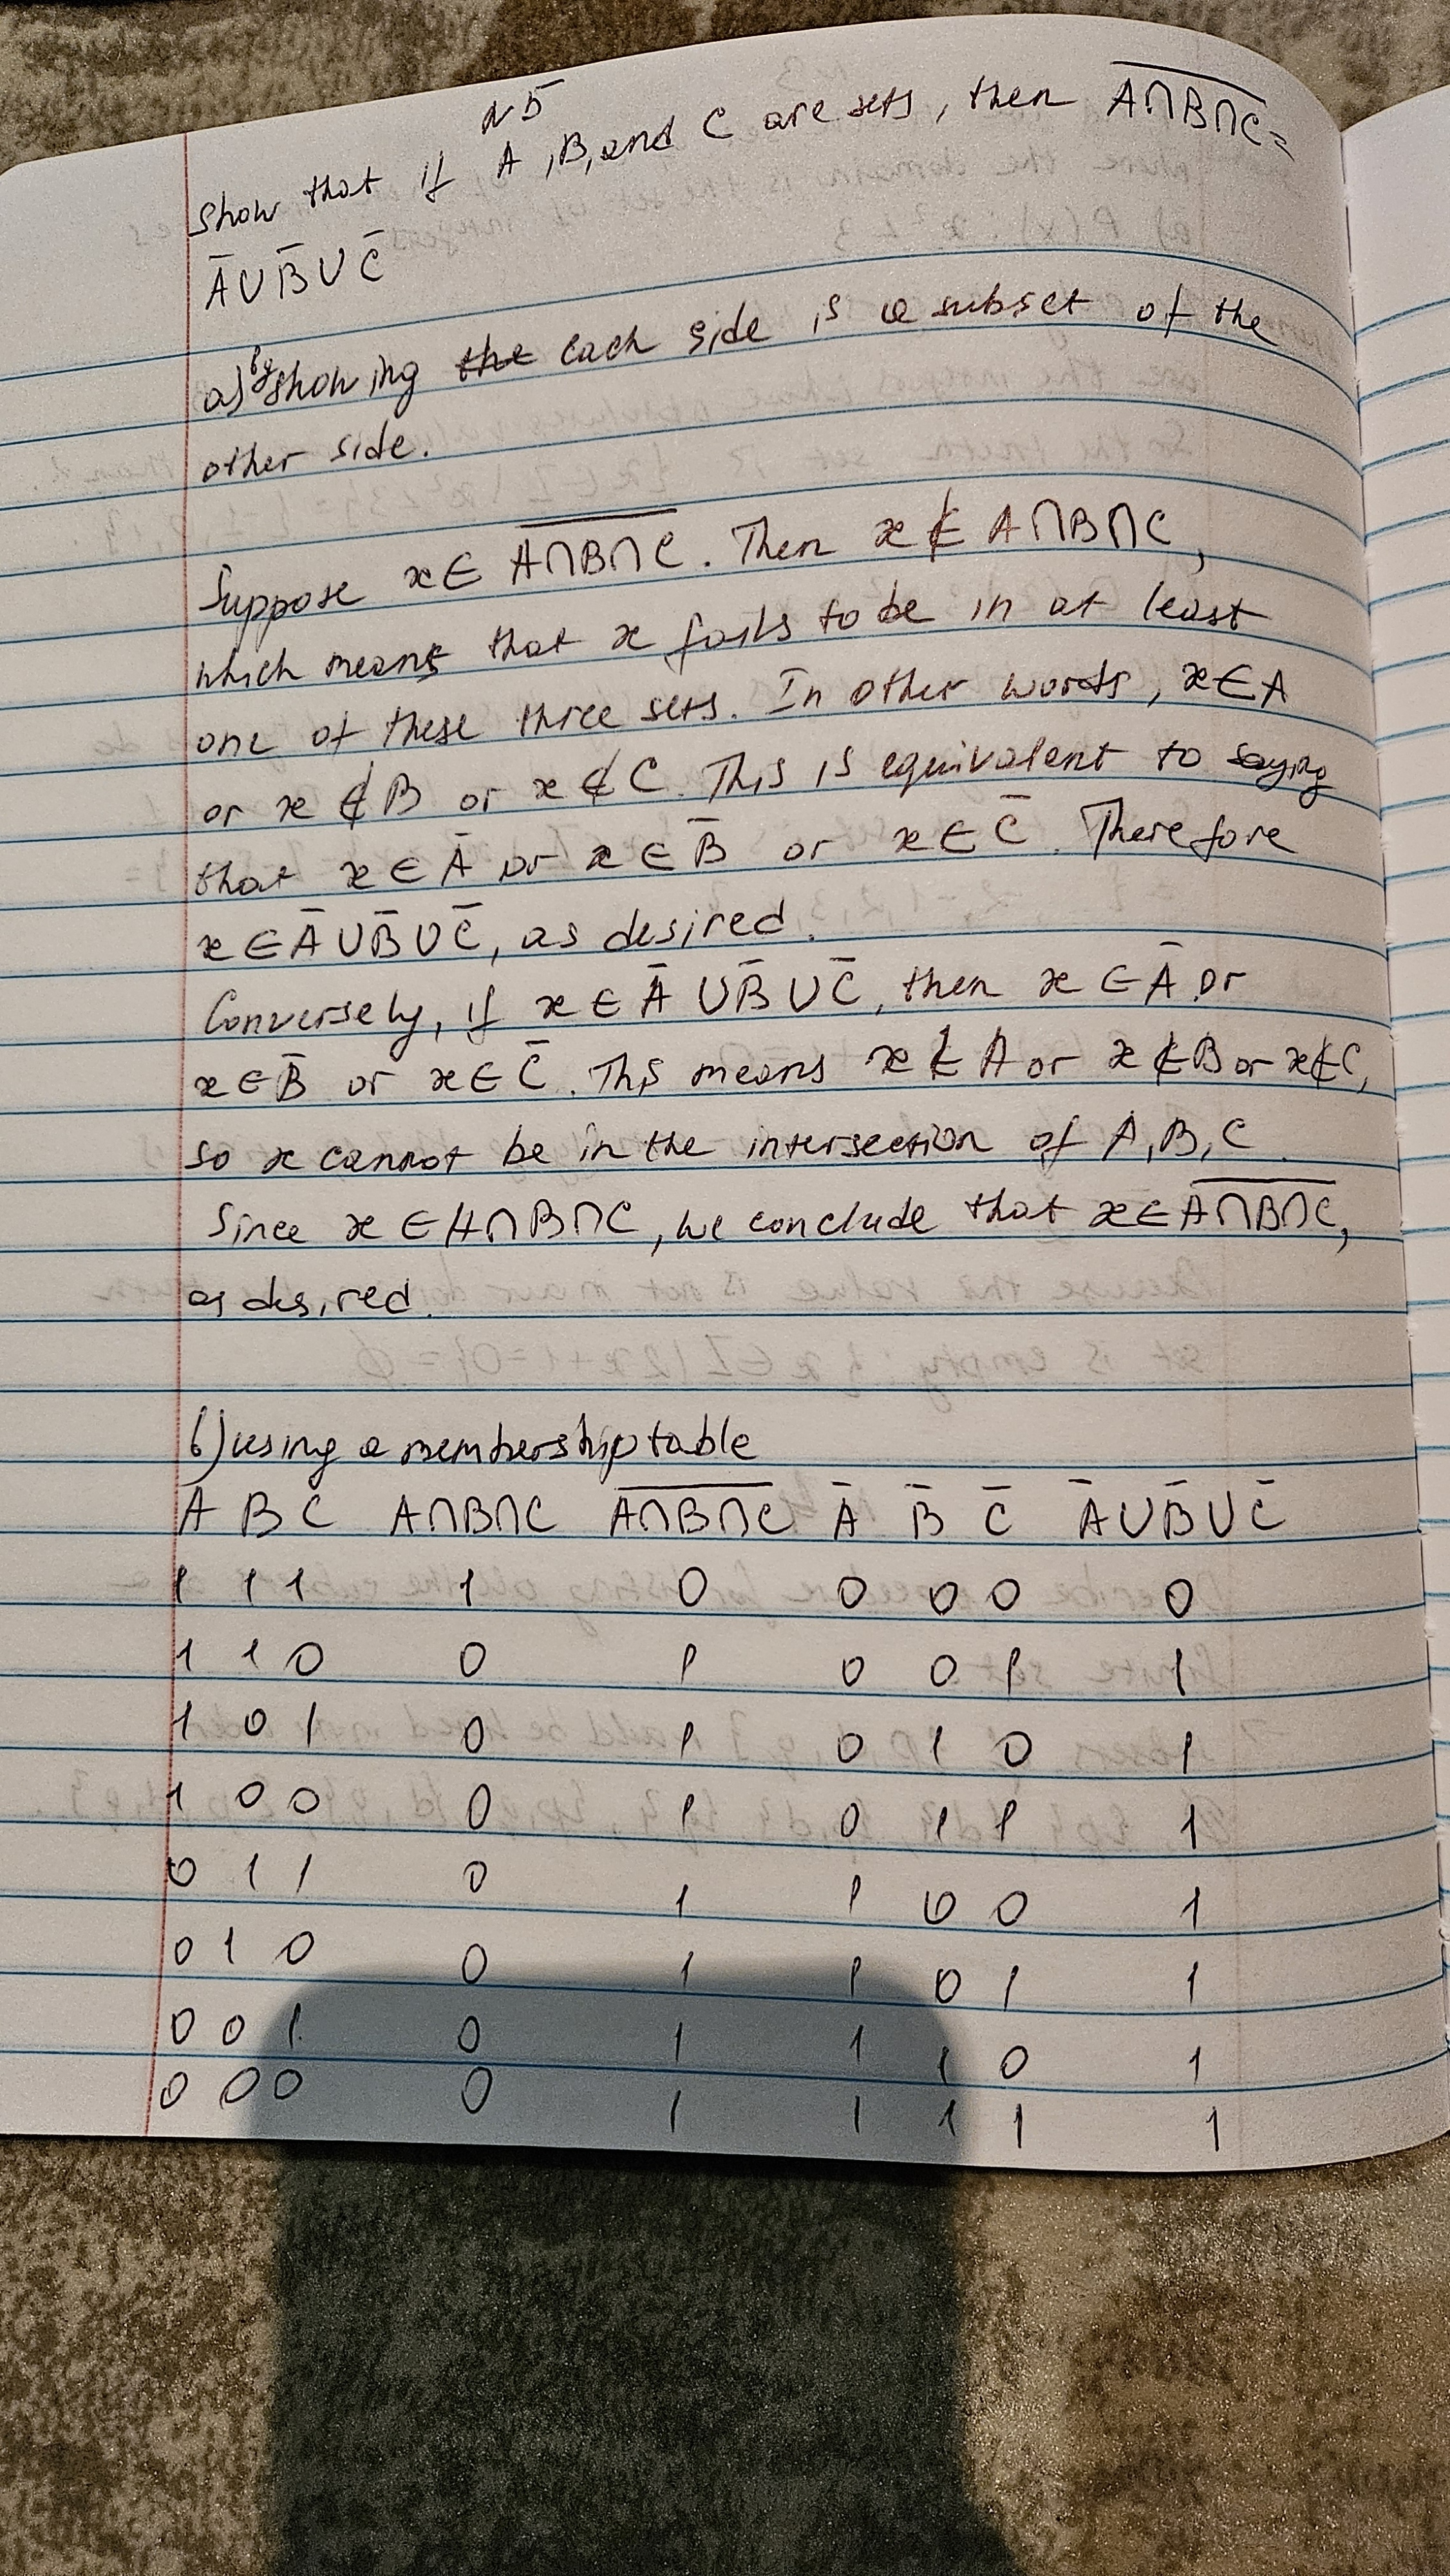 N5
Show that if A, B, and C are sets, then \overline{A∩B∩C} =
A̅ ∪ B̅ ∪ C̅
a) by showing the each side is a subset of the
other side.
Suppose x ∈ \overline{A∩B∩C}. Then x ∉ A∩B∩C,
which means that x fails to be in at least
one of these three sets. In other words, x ∈ A
or x ∉ B or x ∉ C. This is equivalent to saying
that x ∈ A̅ or x ∈ B̅ or x ∈ C̅. Therefore
x ∈ A̅ ∪ B̅ ∪ C̅, as desired.
Conversely, if x ∈ A̅ ∪ B̅ ∪ C̅, then x ∈ A̅ or
x ∈ B̅ or x ∈ C̅. This means x ∉ A or x ∉ B or x ∉ C,
so x cannot be in the intersection of A, B, C.
Since x ∈ A∩B∩C, we conclude that x ∈ \overline{A∩B∩C},
as desired.
b) using a membership table
A B C A∩B∩C \overline{A∩B∩C} A̅ B̅ C̅ A̅ ∪ B̅ ∪ C̅
1 1 1 1 0 0 0 0 0
1 1 0 0 1 0 0 1 1
1 0 1 0 1 0 1 0 1
1 0 0 0 1 0 1 1 1
0 1 1 0 1 1 0 0 1
0 1 0 0 1 1 0 1 1
0 0 1 0 1 1 1 0 1
0 0 0 0 1 1 1 1 1